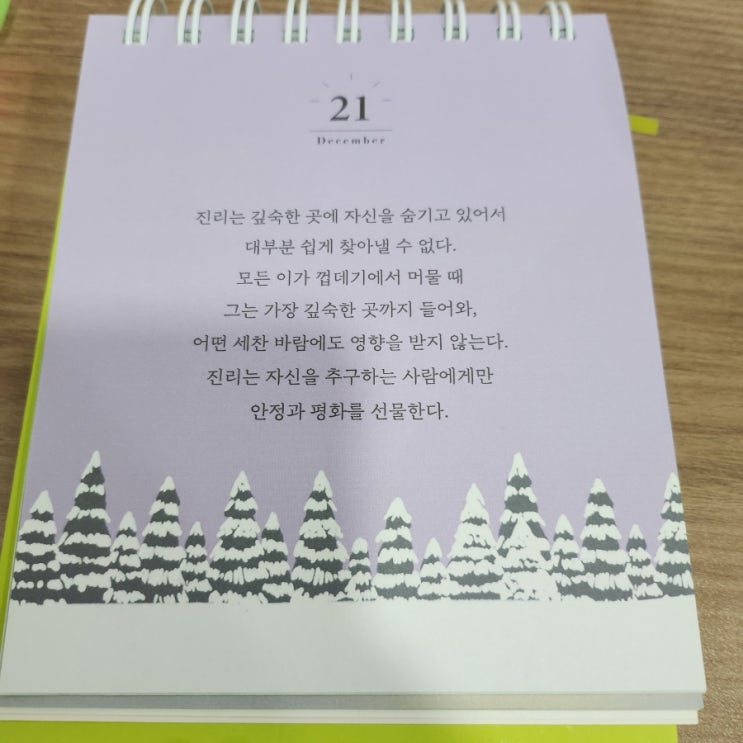 21
December
진리는 깊숙한 곳에 자신을 숨기고 있어서
대부분 쉽게 찾아낼 수 없다.
모든 이가 껍데기에서 머물 때
그는 가장 깊숙한 곳까지 들어와,
어떤 세찬 바람에도 영향을 받지 않는다.
진리는 자신을 추구하는 사람에게만
안정과 평화를 선물한다.